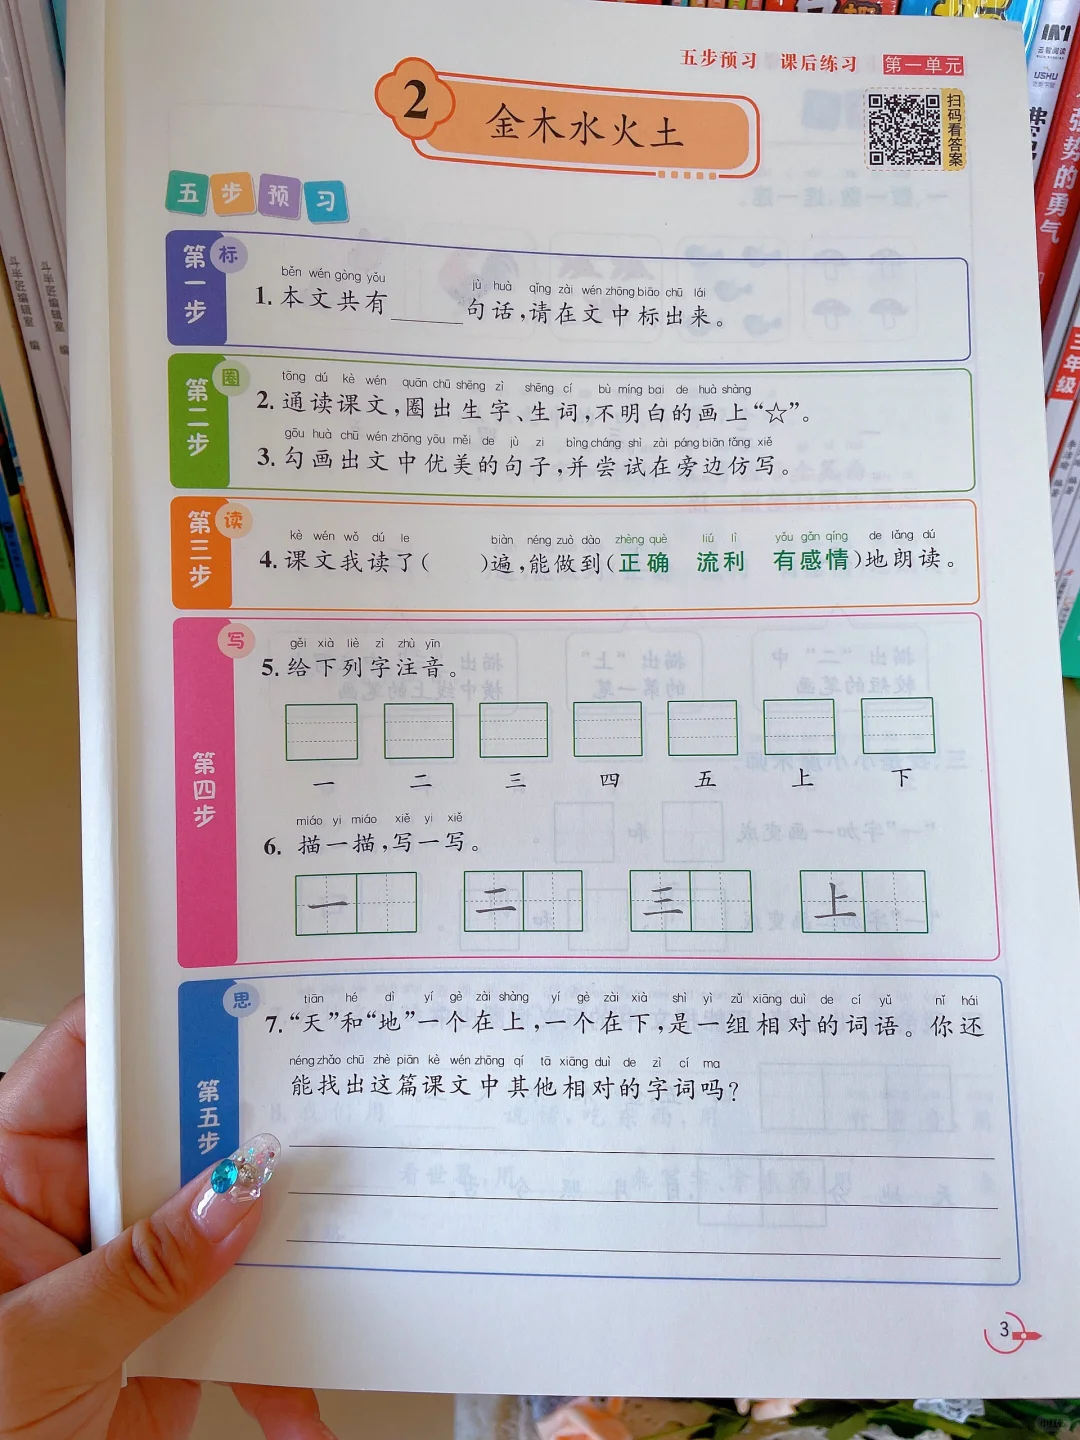 五步预习 课后练习 第一单元
2 金木水火土
扫码看答案
五步预习
第一步 标
běn wén gòng yǒu jù huà qǐng zài wén zhōng biāo chū lái
1. 本文共有______句话,请在文中标出来。
第二步 圈
tōng dú kè wén quān chū shēng zì shēng cí bù míng bai de huà shàng
2. 通读课文,圈出生字、生词,不明白的画上“☆”。
gōu huà chū wén zhōng yōu měi de jù zi bìng cháng shì zài páng biān fǎng xiě
3. 勾画出文中优美的句子,并尝试在旁边仿写。
第三步 读
kè wén wǒ dú le biàn néng zuò dào zhèng què liú lì yǒu gǎn qíng de lǎng dú
4. 课文我读了( )遍,能做到(正确 流利 有感情)地朗读。
第四步 写
gěi xià liè zì zhù yīn
5. 给下列字注音。
一 二 三 四 五 上 下
miáo yi miáo xiě yi xiě
6. 描一描,写一写。
一 二 三 上
第五步 思
tiān hé dì yí gè zài shàng yí gè zài xià shì yì zǔ xiāng duì de cí yǔ nǐ hái
7. “天”和“地”一个在上,一个在下,是一组相对的词语。你还
néng zhǎo chū zhè piān kè wén zhōng qí tā xiāng duì de zì cí ma
能找出这篇课文中其他相对的字词吗?
3
强势的勇气
三年级
云智阅读
USHU
斗半匠编辑室 编
斗半匠编辑室